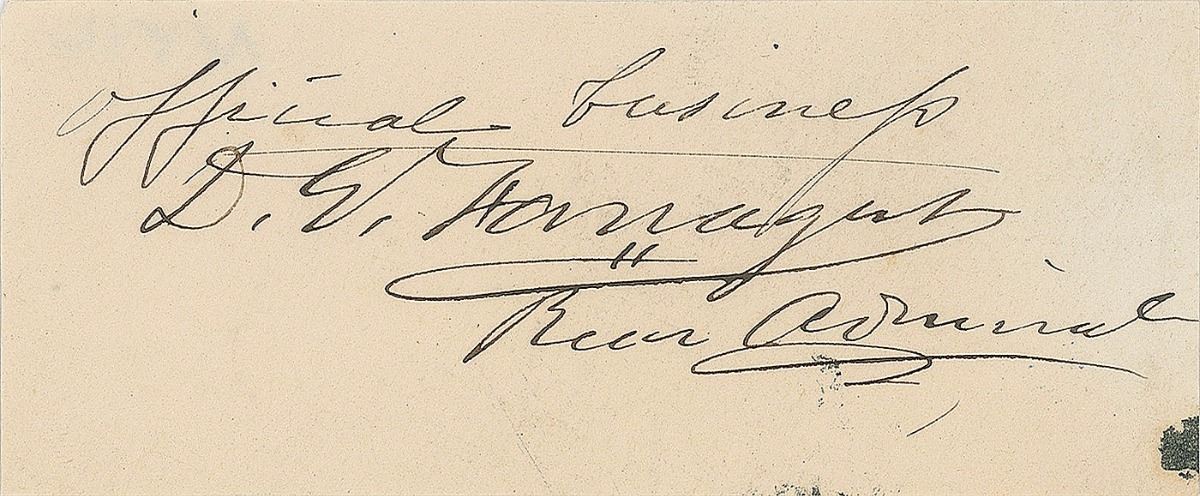 Official business
D. G. Farragut
Rear Admiral